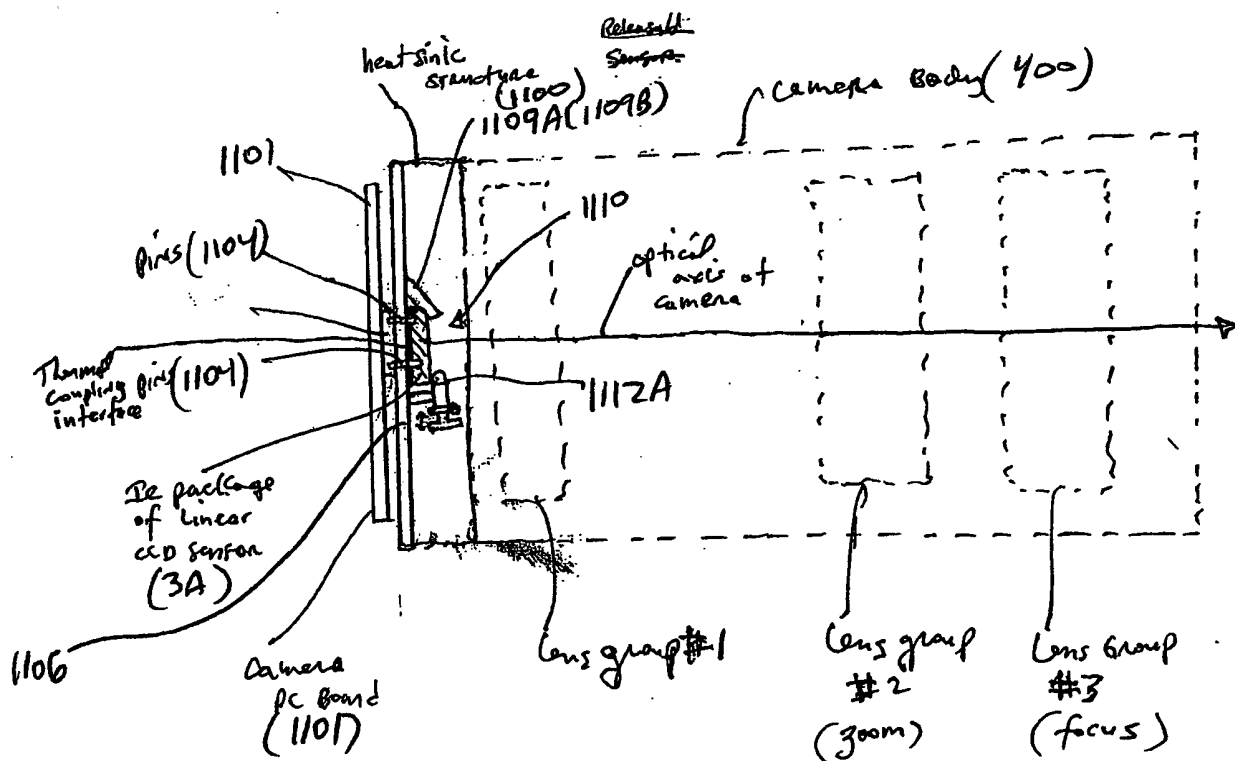 Releasable
Sensor
heatsink
structure
(1100)
1109A(1109B)
camera Body (400)
1101
pins (1104)
1110
optical
axis of
camera
Thermal
coupling pins (1104)
interface
1112A
IC package
of linear
CCD sensor
(3A)
1106
camera
PC Board
(1101)
Lens group #1
Lens group
#2
(zoom)
Lens Group
#3
(focus)